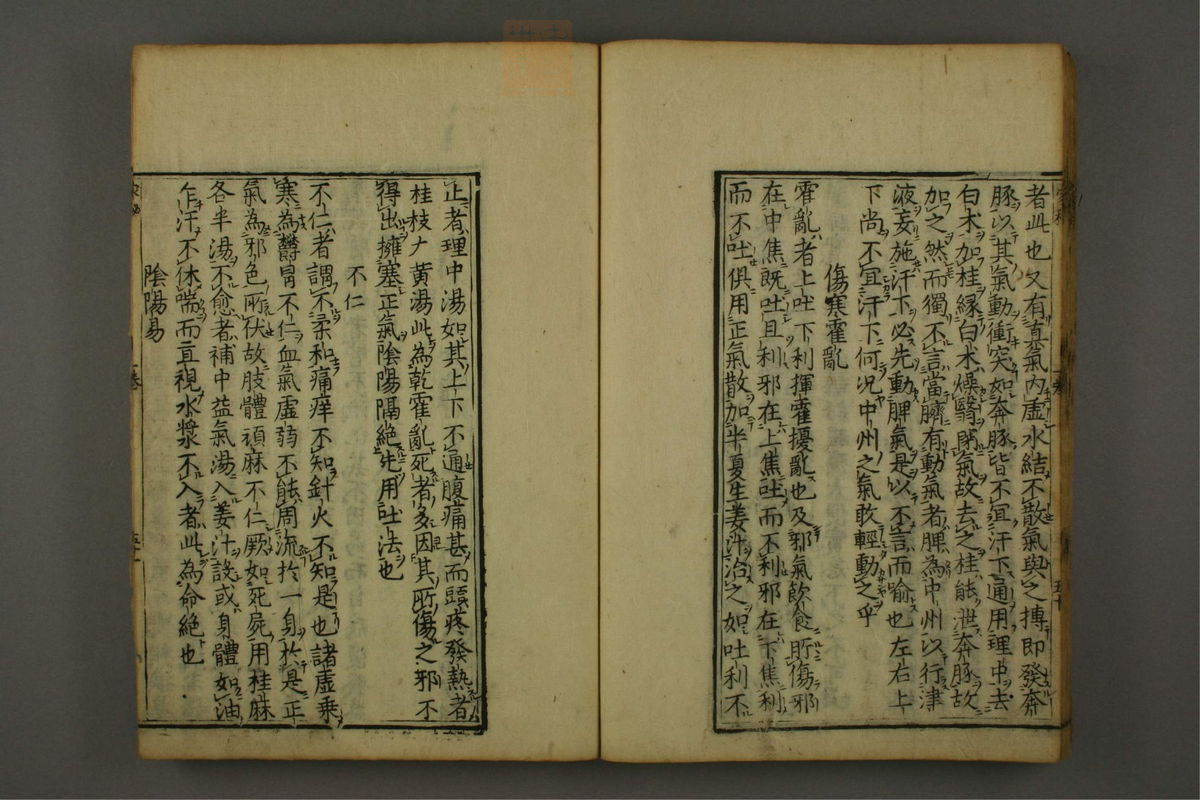 者此也又有真氣内虚水結不散氣與之摶即發奔
豚以其氣動衝突如奔豚皆不冝汗下通用理中去
白术加桂縁白术燥醫閉氣故去之桂能泄奔豚故
加之然而獨不言當臍有動氣者脾為中州以行津
液妄施汗下必先動脾氣是以不言而喻也左右上
下尚不冝汗下何况中州之氣敢輕動之乎
傷寒霍亂
霍亂者上吐下利揮霍擾亂也及邪氣飲食所傷邪
在中焦既吐且利邪在上焦吐而不利邪在下焦利
而不吐俱用正氣散加半夏生姜汁治之如吐利不
止者理中湯如其上下不通腹痛甚而頭疼發熱者
桂枝大黄湯此為乾霍亂死者多因其所傷之邪不
得出擁塞正氣陰陽隔絶先用吐法也
不仁
不仁者謂不柔和痛痒不知針火不知是也諸虚乗
寒為欝冒不仁血氣虚弱不能周流於一身於是正
氣為邪色所伏故肢體頑麻不仁厥如死屍用桂麻
各半湯不愈者補中益氣湯入姜汁設或身體如油
乍汗不休喘而直視水漿不入者此為命絶也
陰陽易
五十